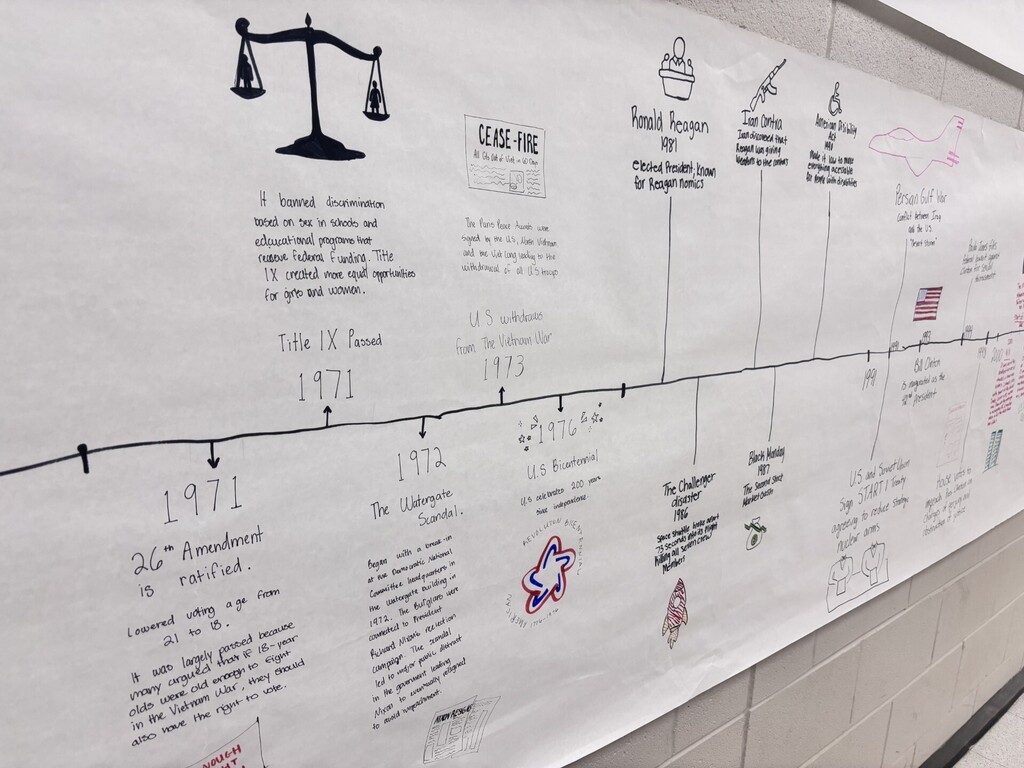 It banned discrimination
based on sex in schools and
educational programs that
receive federal funding. Title
IX created more equal opportunities
for girls and women.
Title IX Passed
1971
CEASE-FIRE
The Paris Peace
signed by the U.S, North Vietnam,
and the Viet Cong leading to the
withdrawal of all U.S troops
U.S withdraws
from The Vietnam War
1973
Ronald Reagan
1981
elected President, known
for Reagan nomics
Iran Contra
Iran discovered that
Reagan was giving
weapons to the contras
American Disibility
Act
Made it law to make
everything accessible
for people with disabilities
Persian Gulf War
conflict between Iraq
and the US
"Desert Storm"
1971
26th Amendment
is ratified.
Lowered voting age from
21 to 18.
It was largely passed because
many argued that if 18-year
olds were old enough to fight
in the Vietnam War, they should
also have the right to vote.
1972
The Watergate
Scandal.
Began with a break-in
at the Democratic National
Committee headquarters in
the Watergate building in
1972. The Burglars were
connected to President
Richard Nixons reelection
campaign. The scandal
led to major public distrust
in the government leading
Nixon to eventually resigned
to avoid impeachment.
NIXON RESIGNS
1976
U.S Bicentennial
U.S celebrates 200 years
since independence.
AMERICAN REVOLUTION BICENTENNIAL
1776-1976
The Challenger
disaster
1986
Space shuttle broke apart
73 seconds into its flight
killing all seven crew
members
Black Monday
1987
The Second Stock
Market Crash
1991
US and Soviet Union
Sign START I Treaty
agreeing to reduce strategic
nuclear arms
Bill Clinton
is inaugurated as the
42nd President